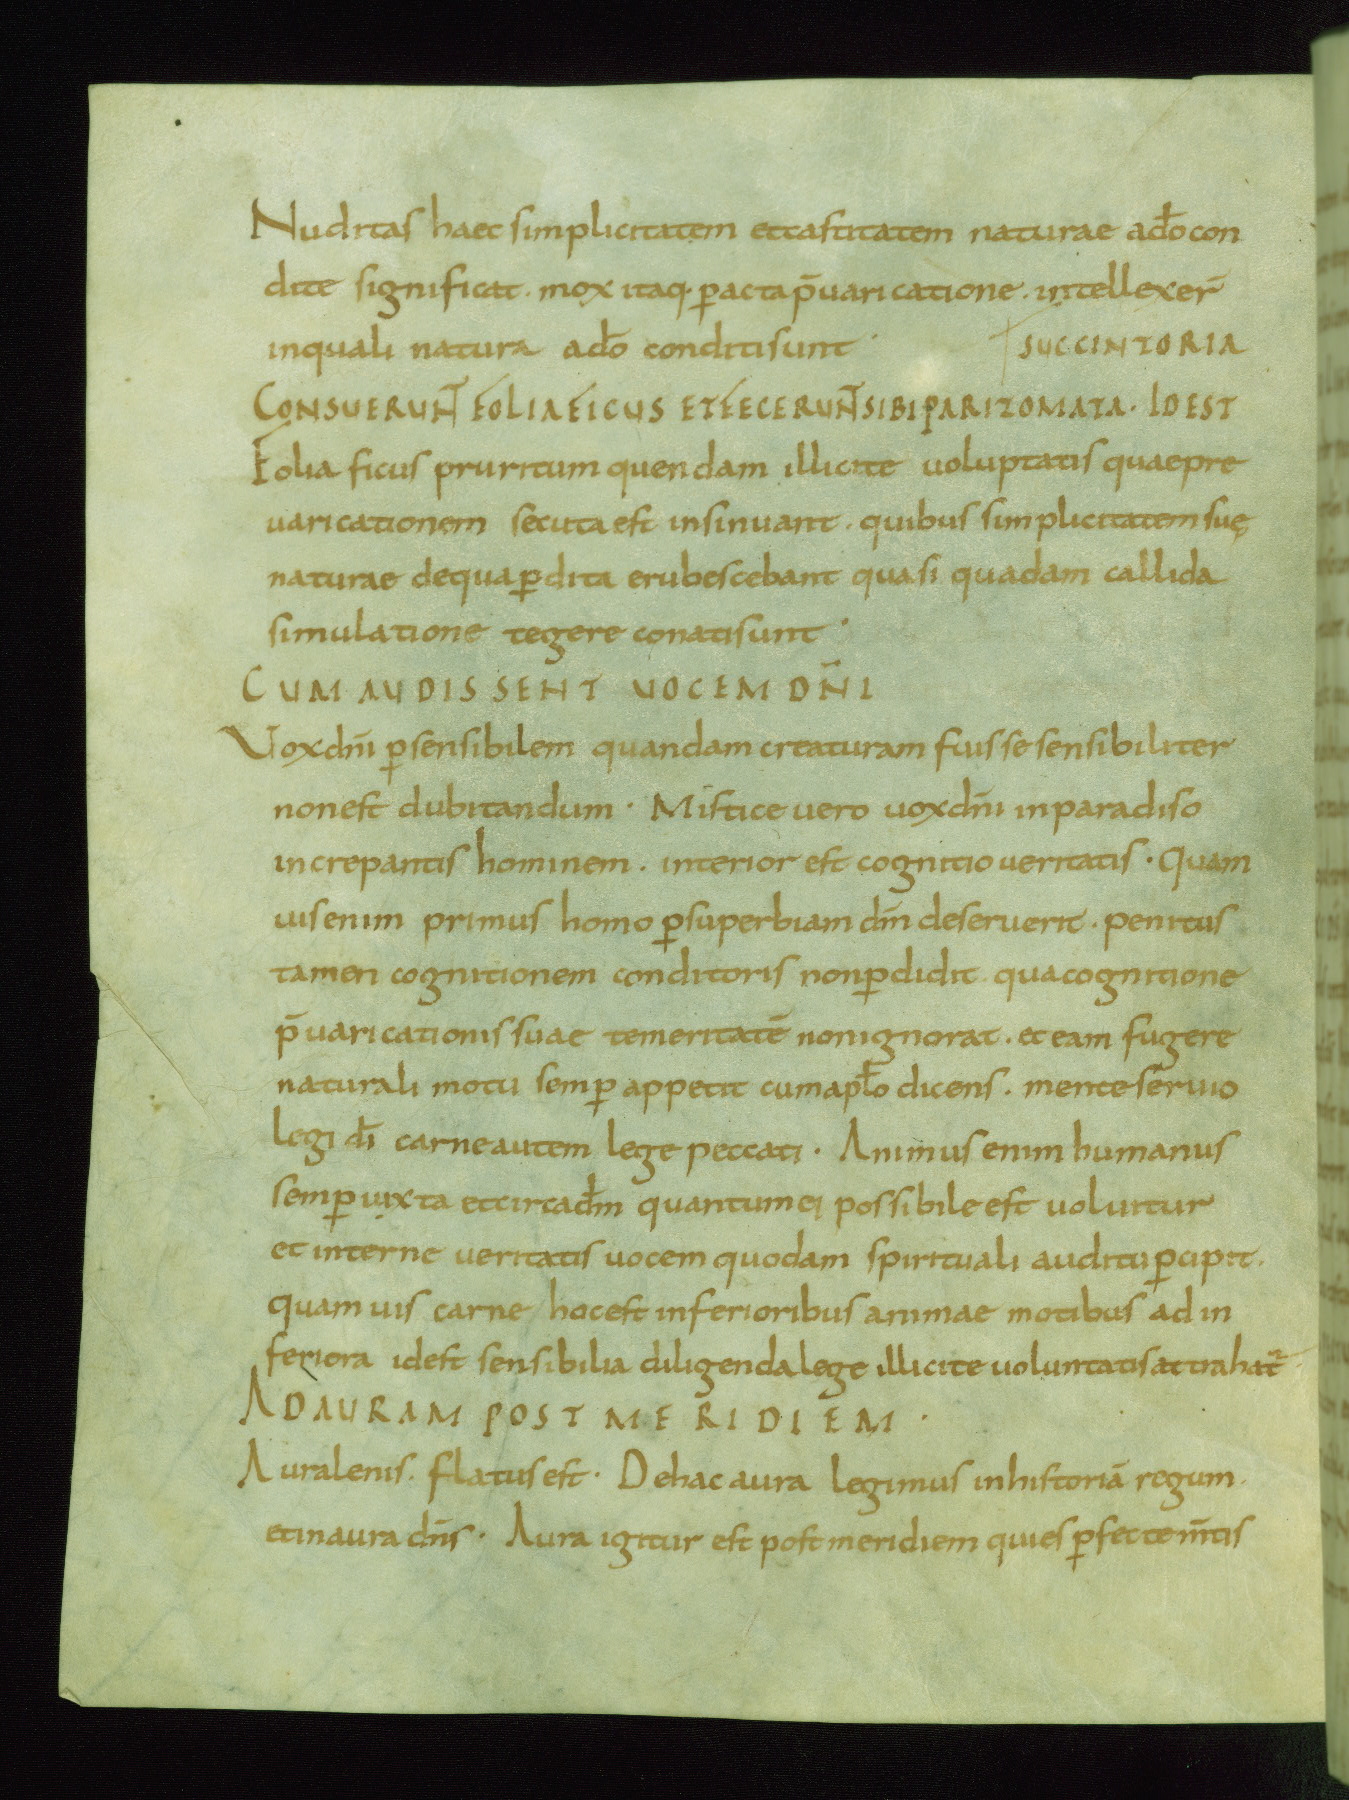 Nuditas haec simplicitatem etcastitatem naturae ado̅con
dite significat. mox itaq. p̱acta p̅uaricatione. intellexer̅
inquali natura ado̅ conditisunt
SUCCINTORIA
CONSUERUNT̅ FOLIA FICUS ETFECERUNT̅ SIBI PARIZOMATA. IDEST
Folia ficus pruritum quendam illicite uoluptatis quaepre
uaricationem secuta est insinuant. quibus simplicitatem suę
naturae dequa p̱dita erubescebant quasi quadam callida
simulatione tegere conatisunt.
CUM AUDISSENT UOCEM DN̅I
Uoxdn̅i p̱sensibilem quandam creaturam fuisse sensibiliter
nonest dubitandum. Mistice uero uoxdn̅i inparadiso
increpantis hominem. interior est cognitio ueritatis. Quam
uisenim primus homo p̱superbiam dn̅m deseruerit. penitus
tamen cognitionem conditoris nonp̱didit. quacognitione
p̅uaricationis suae temeritate̅ nonignorat. et eam fugere
naturali motu semp̱ appetit cumapl̅o dicens. mente seruio
legi di̅ carneautem lege peccati. Animus enim humanus
semp̱ iuxta etcircadm̅ quantumei possibile est uoluitur
et interne ueritatis uocem quodam spirituali auditu p̱cipit.
quamuis carne hocest inferioribus animae motibus ad in
feriora idest sensibilia diligenda lege illicite uoluntatis attrahat̅
ADAURAM POST MERIDIEM.
Auralenis. flatus est. Dehac aura legimus inhistoria̅ regum.
etinaura dn̅s. Aura igitur est post meridiem quies p̱fecte m̅tis